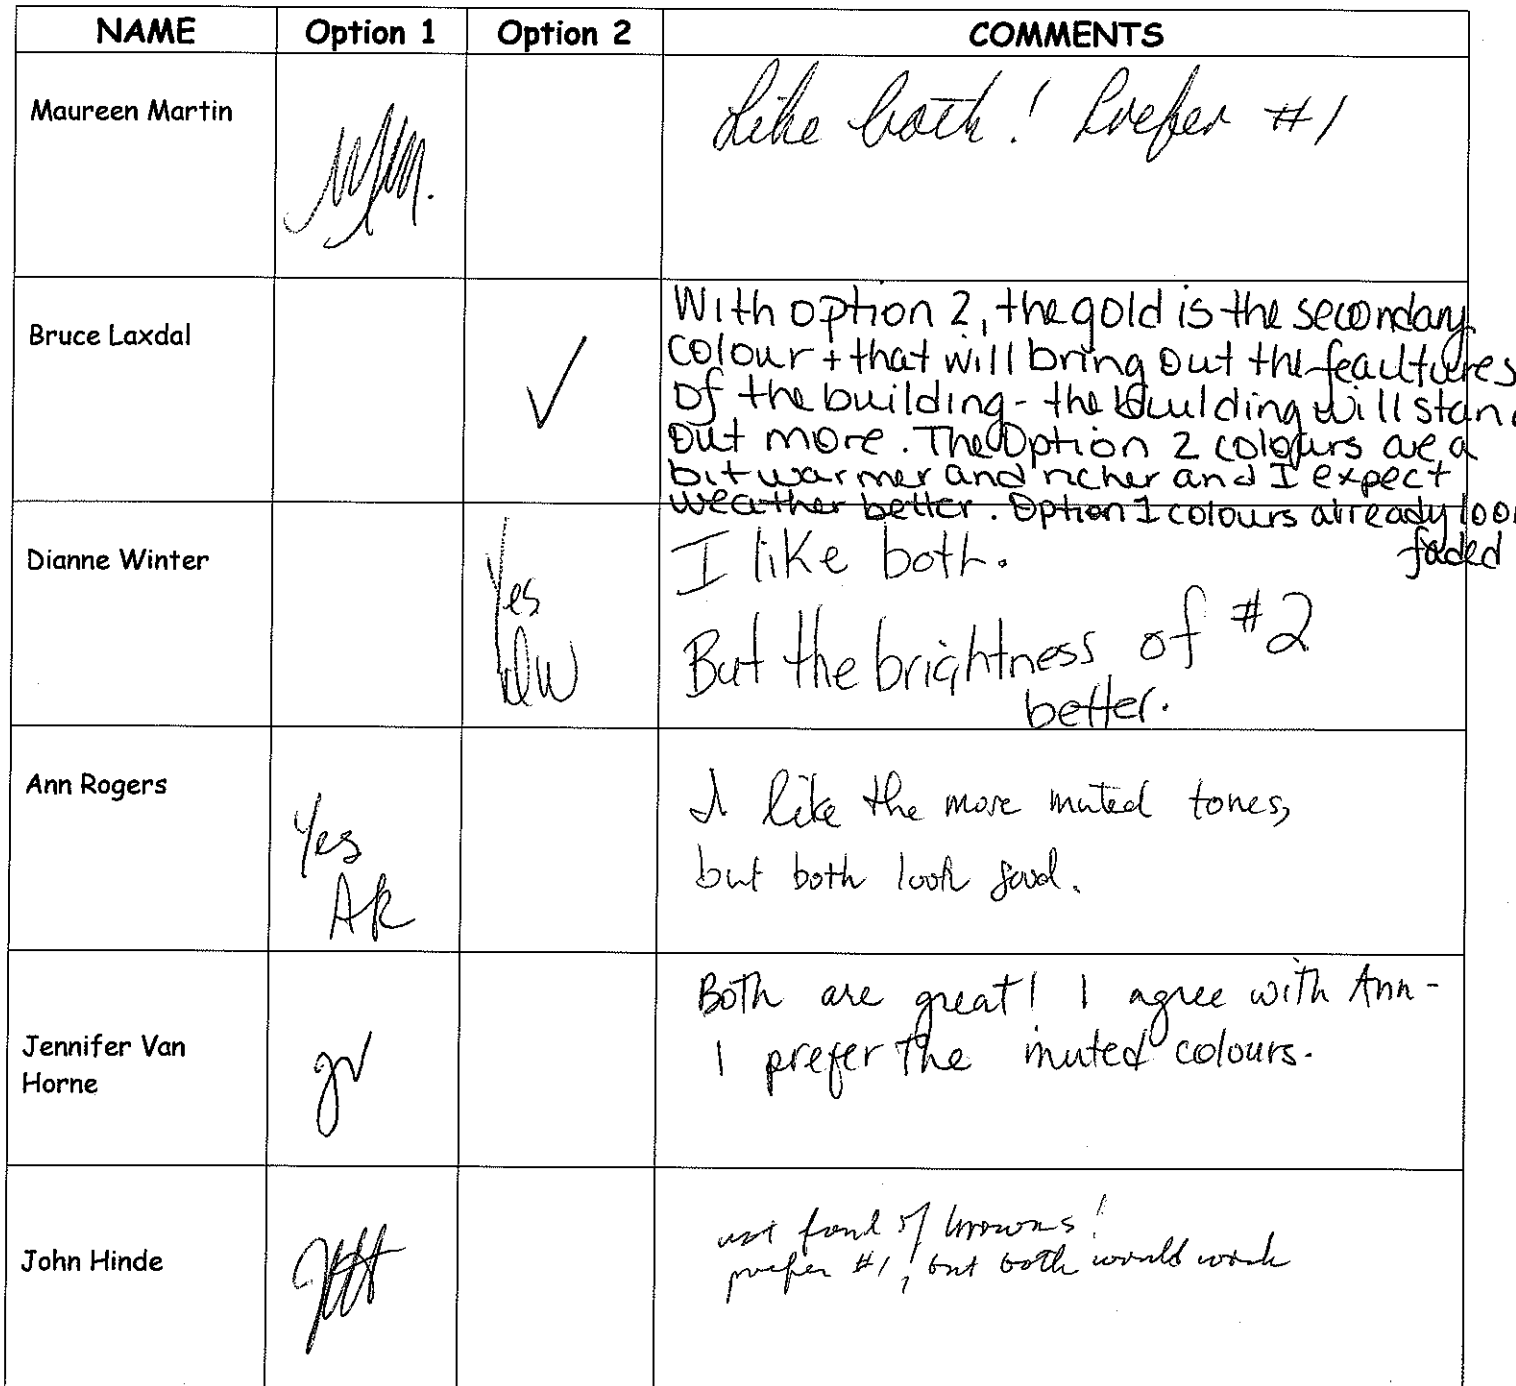 NAME Option 1 Option 2 COMMENTS
Maureen Martin
MM.
Like both! Prefer #1
Bruce Laxdal
✓
With option 2, the gold is the secondary
colour + that will bring out the feautures
of the building - the building will stan
out more. The Option 2 colours are a
bit warmer and richer and I expect
weather better. Option 1 colours already loo
faded
Dianne Winter
Yes
DW
I like both.
But the brightness of #2
better.
Ann Rogers
Yes
AR
I like the more muted tones,
but both look good.
Jennifer Van
Horne
JV
Both are great! I agree with Ann -
I prefer the muted colours.
John Hinde
JH
not fond of browns!
prefer #1, but both would work